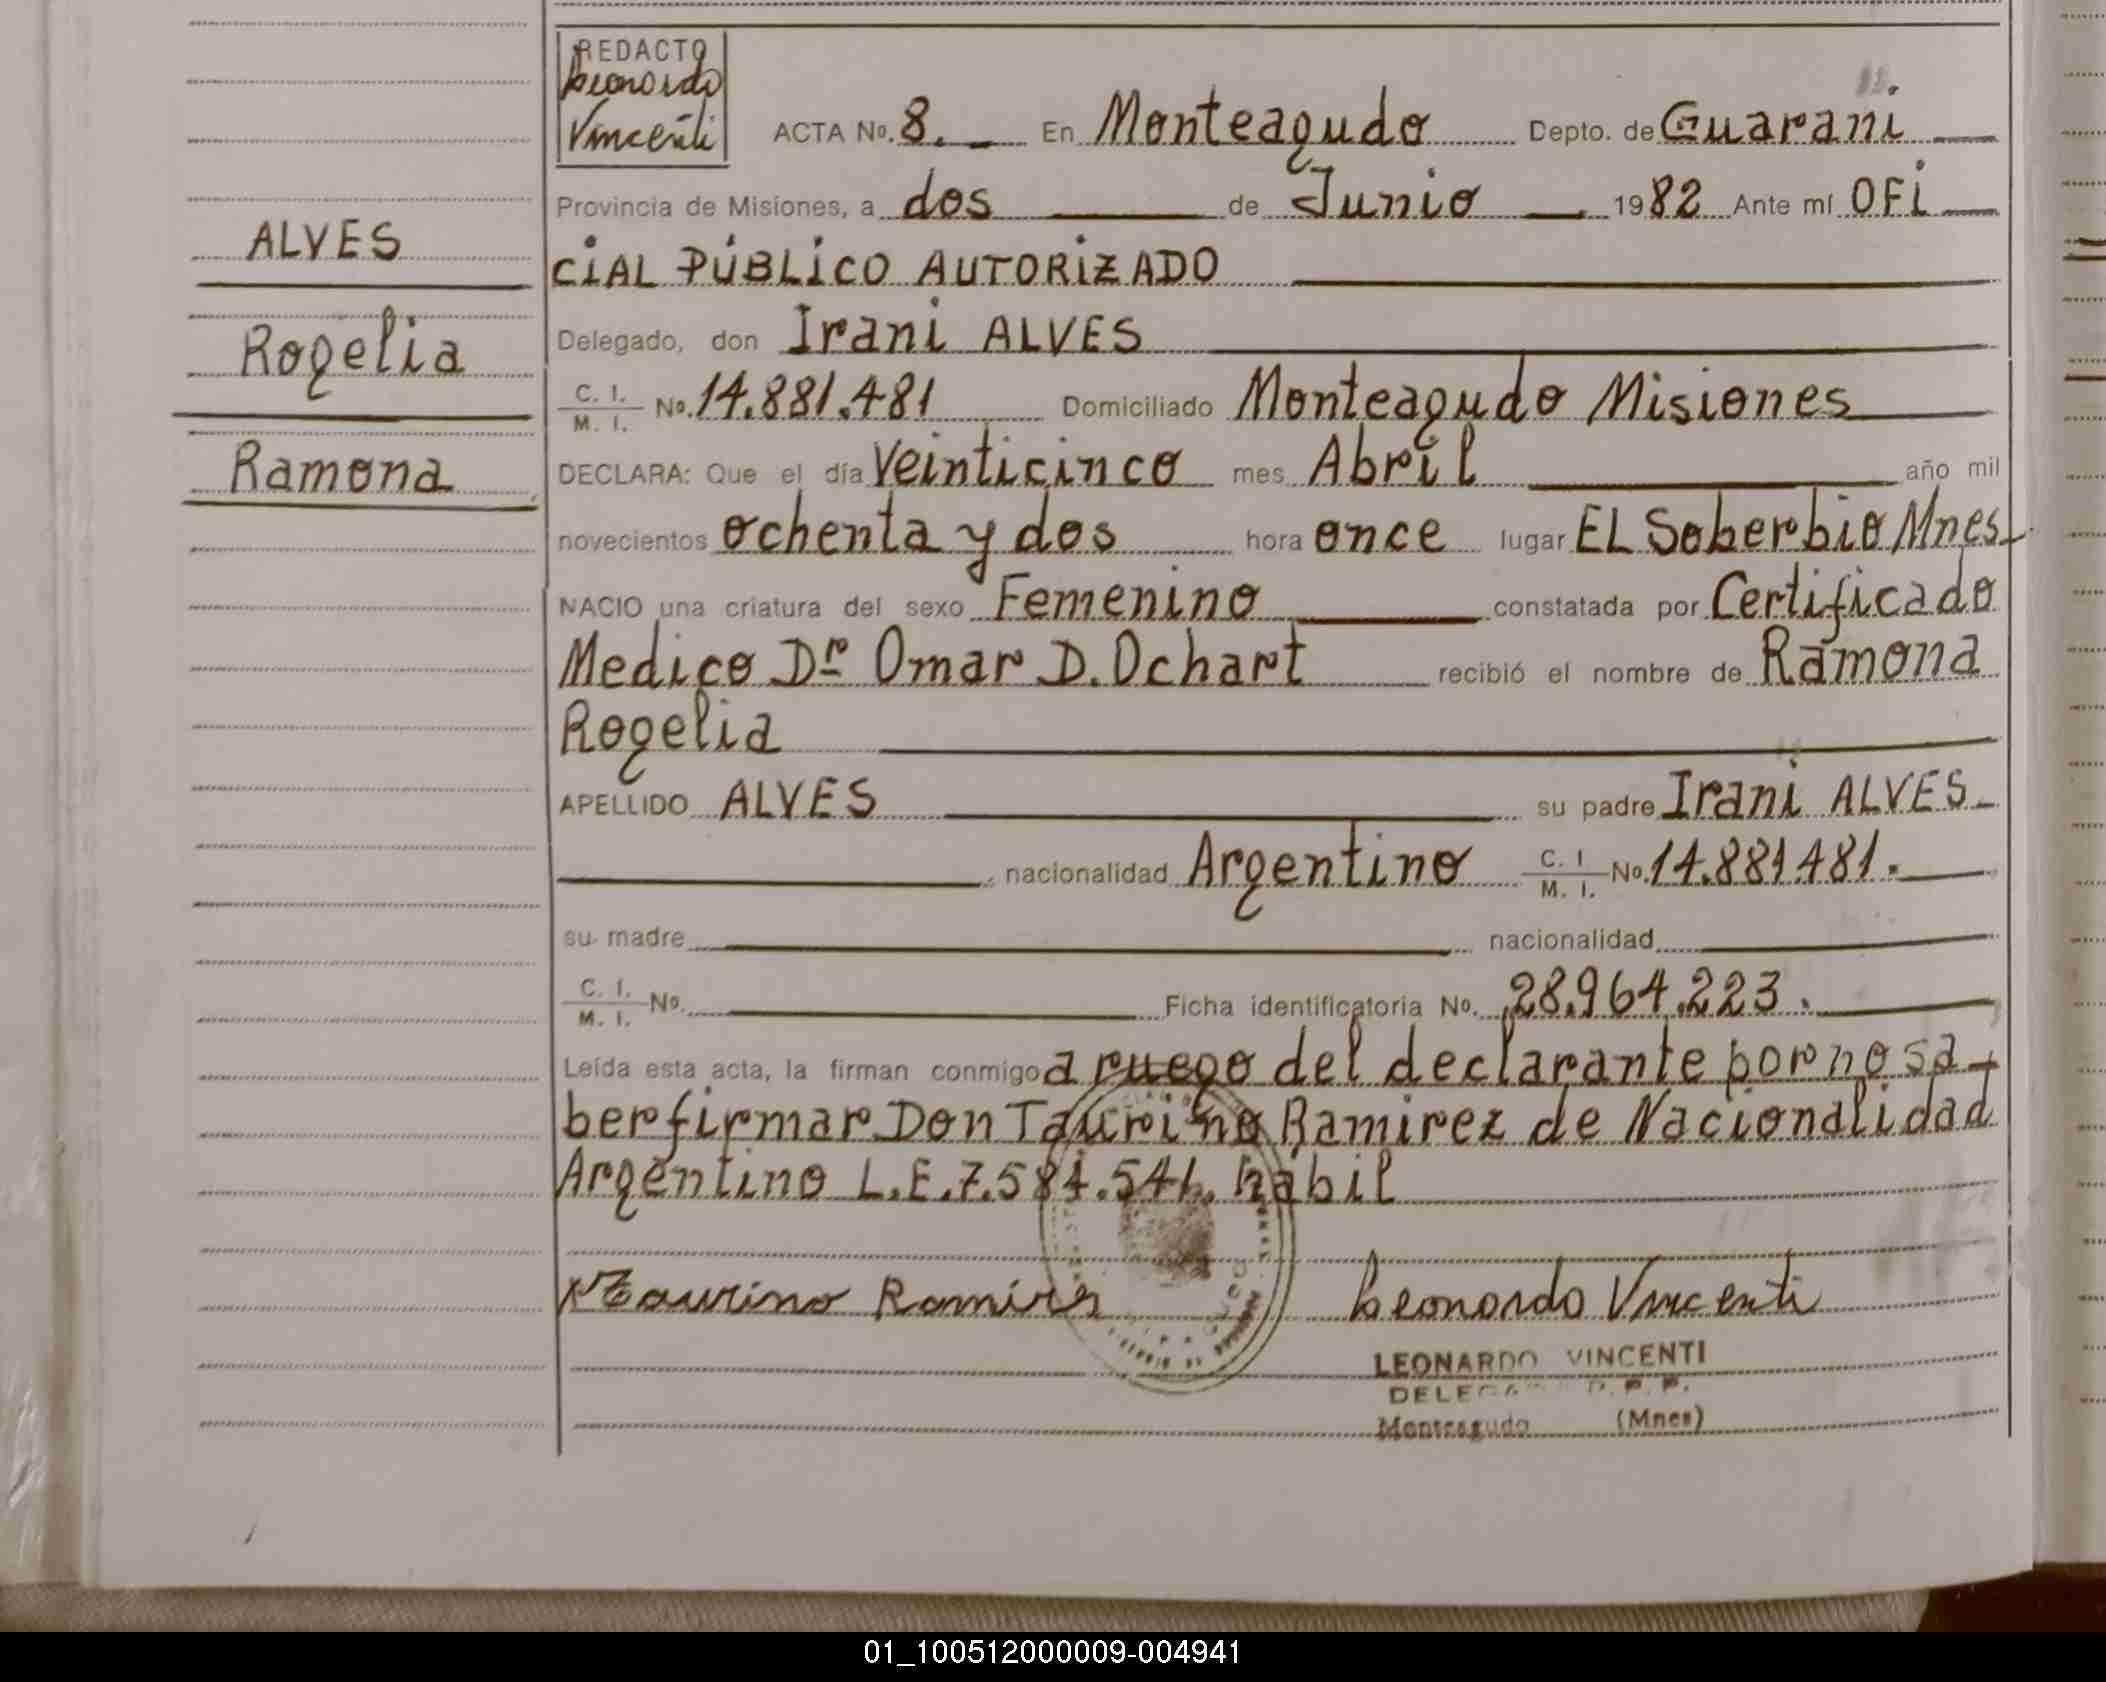 REDACTO
Leonardo
Vincenti
ACTA No. 8. En Monteagudo Depto. de Guarani
Provincia de Misiones, a dos de Junio 1982 Ante mí OFI
CIAL PÚBLICO AUTORIZADO
ALVES
Delegado, don Irani ALVES
Rogelia
C. I. / M. I. No. 14.881.481 Domiciliado Monteagudo Misiones
Ramona
DECLARA: Que el día Veinticinco mes Abril año mil
novecientos ochenta y dos hora once lugar EL Soberbio Mnes
NACIO una criatura del sexo Femenino constatada por Certificado
Medico Dr Omar D. Ochart recibió el nombre de Ramona
Rogelia
APELLIDO ALVES su padre Irani ALVES
nacionalidad Argentino C. I / M. I. No. 14.881.481.
su madre nacionalidad
C. I. / M. I. No. Ficha identificatoria No. 28.964.223.
Leída esta acta, la firman conmigo a ruego del declarante por no sa-
ber firmar Don Taurino Ramirez de Nacionalidad
Argentino L.E. 7.584.541. hábil
Taurino Ramires Leonardo Vincenti
LEONARDO VINCENTI
Monteagudo (Mnes)
01_100512000009-004941